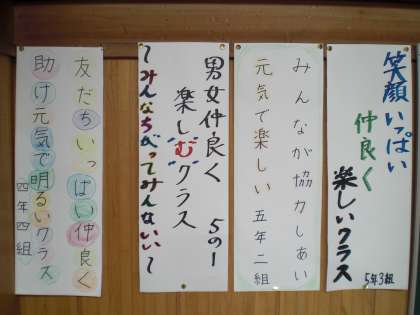 笑顔いっぱい
仲良く
楽しいクラス
5年3組
みんなが協力しあい
元気で楽しい 五年二組
男女仲良く 5の1
楽し"む"クラス
～みんなちがってみんないい～
友だちいっぱい仲良く
助け元気で明るいクラス
四年四組